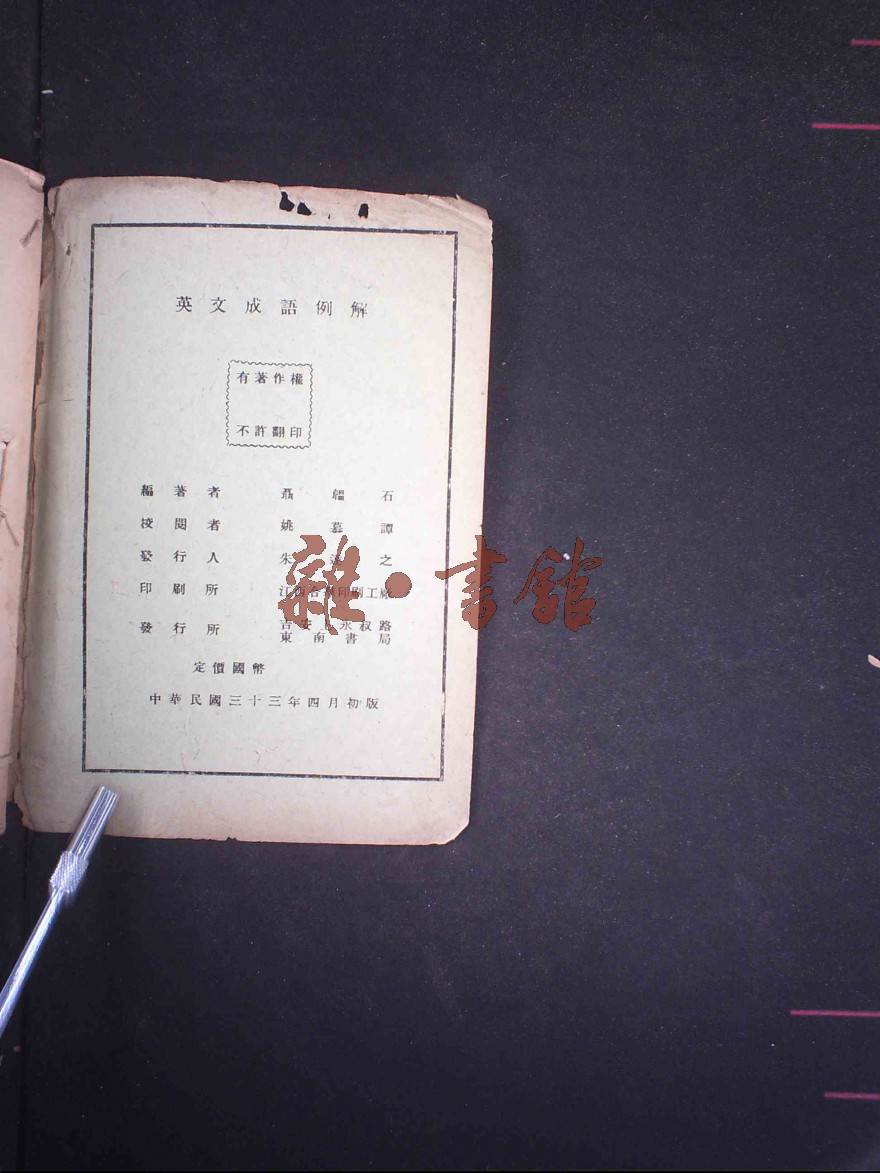 英文成語例解
有著作權
不許翻印
編著者 聶韞石
校閱者 姚慕譚
發行人 朱 之
印刷所 江西合 印刷工廠
發行所 吉安 永叔路
東南書局
定價國幣
中華民國三十三年四月初版
雜·書館